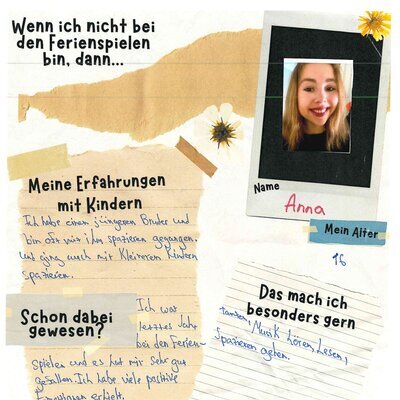 Wenn ich nicht bei
den Ferienspielen
bin, dann...
Name
Anna
Mein Alter
16
Meine Erfahrungen
mit Kindern
Ich habe einen jüngeren Bruder und
bin oft mit ihm spazieren gegangen.
und ging auch mit kleineren Kindern
spazieren.
Schon dabei
gewesen?
Ich war
letztes Jahr
bei den Ferien-
spielen und es hat mir sehr gut
gefallen. Ich habe viele positive
erhielt.
Das mach ich
besonders gern
tanzen, Musik hören, Lesen,
Spazieren gehen.